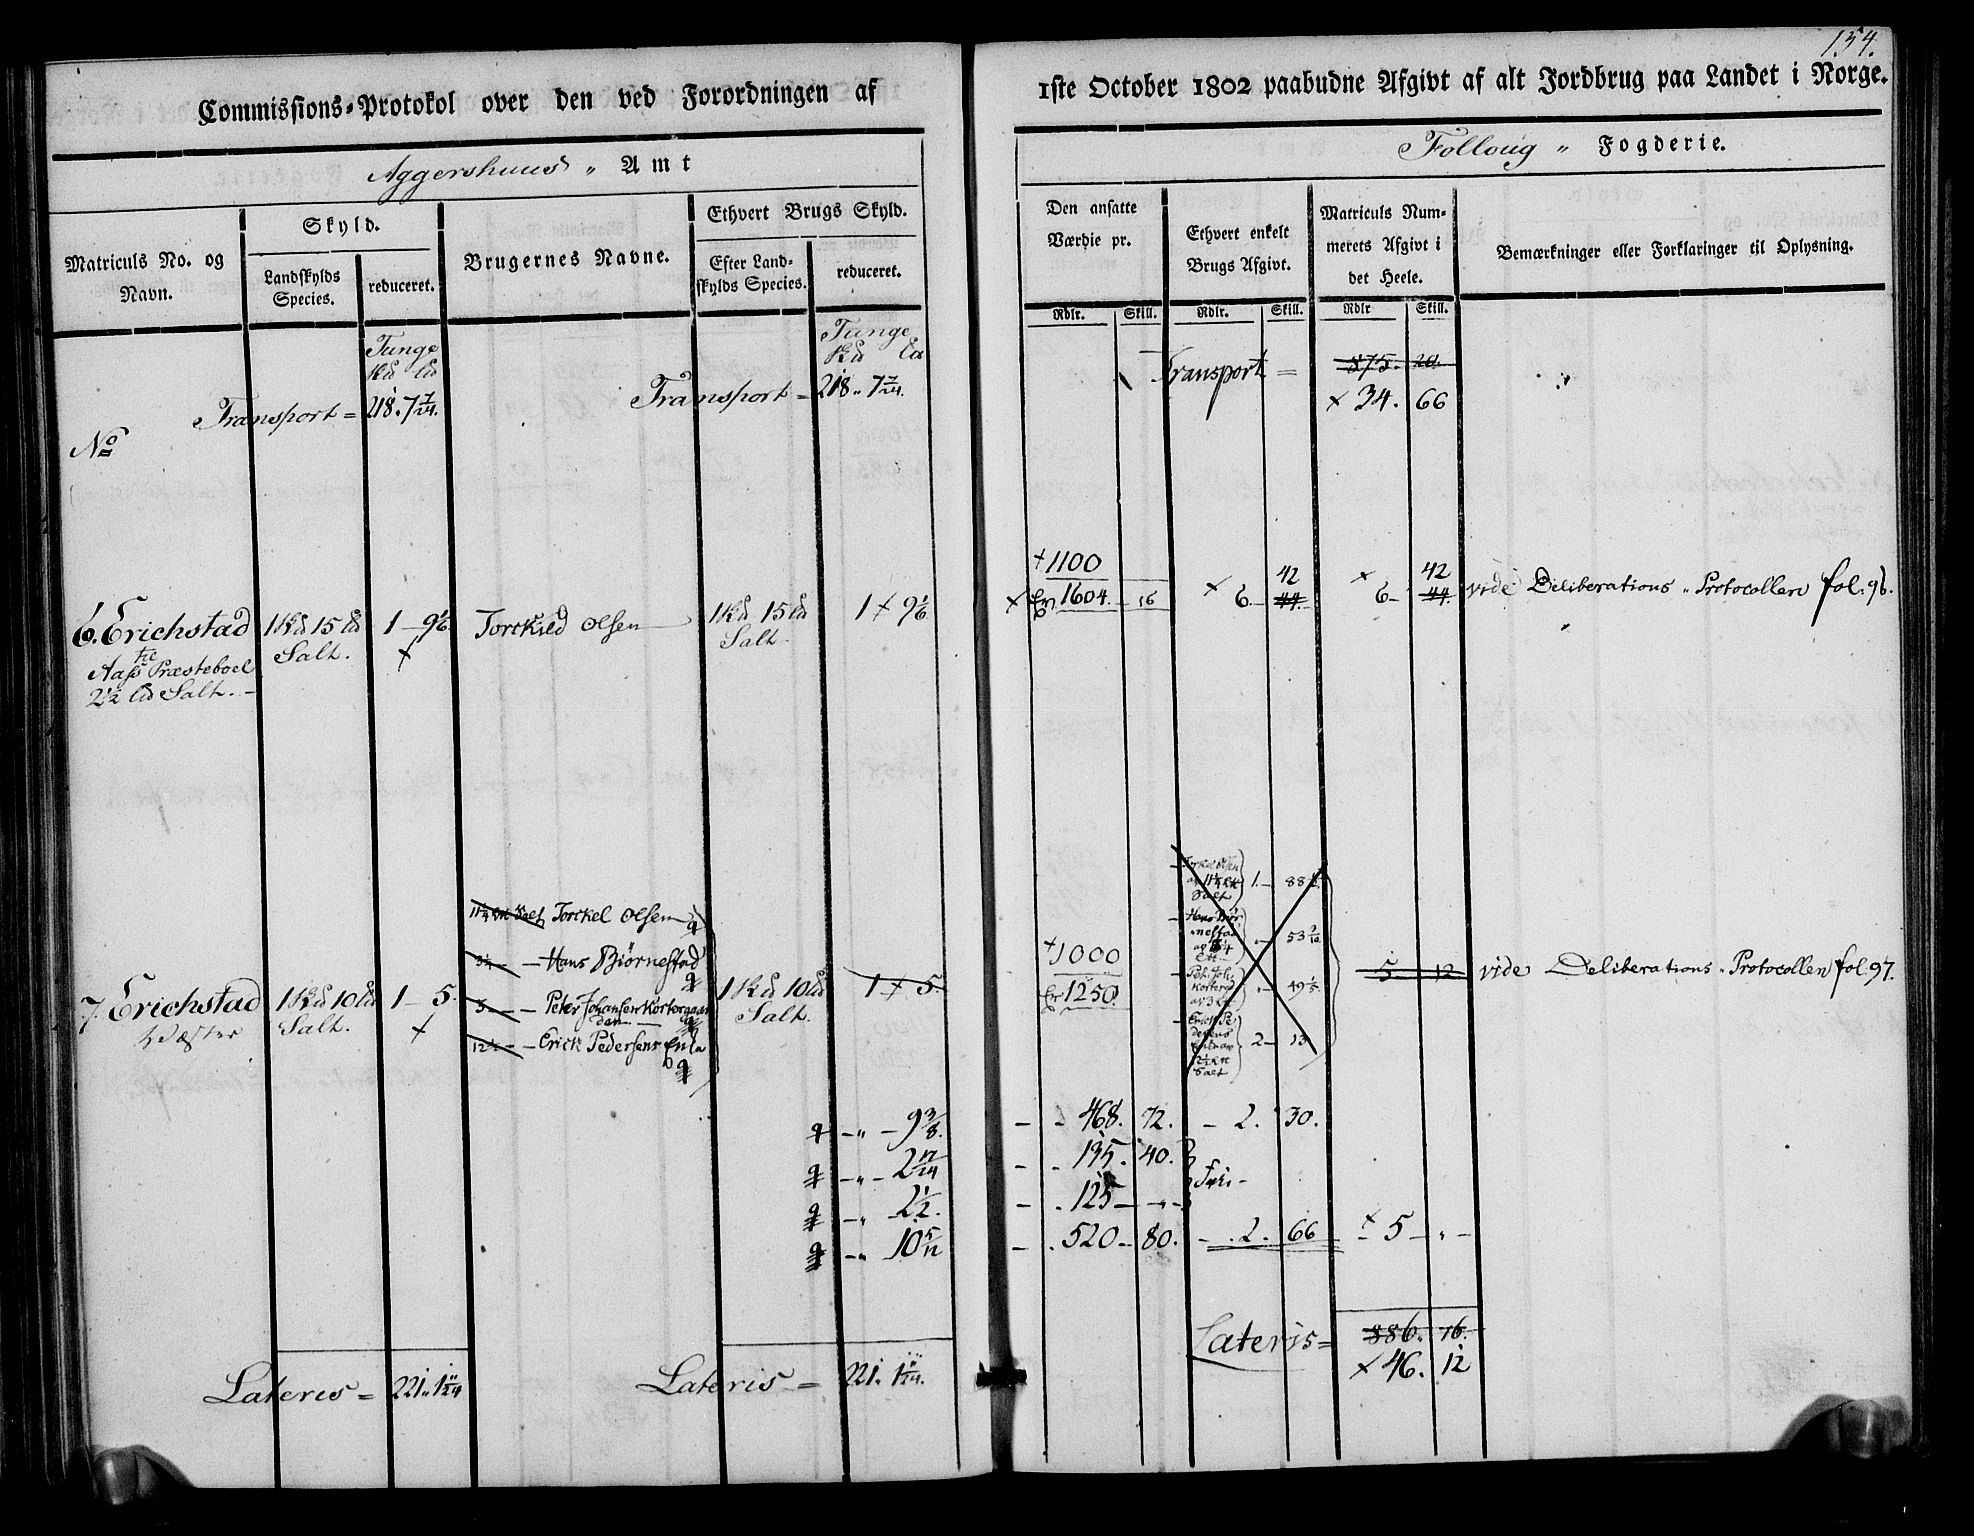 154.
Commissions-Protokol over den ved Forordningen af
1ste October 1802 paabudne Afgivt af alt Jordbrug paa Landet i Norge.
Aggershuus " Amt
Folloug " Fogderie.
Matriculs No. og
Navn.
Skyld.
Landskylds
Species.
reduceret.
Brugernes Navne.
Ethvert Brugs Skyld.
Efter Land-
skylds Species.
reduceret.
Den ansatte
Værdie pr.
Rdlr. Skill.
Ethvert enkelt
Brugs Afgivt.
Rdlr. Skill.
Matriculs Num-
merets Afgivt i
det Heele.
Rdlr Skill.
Bemærkninger eller Forklaringer til Oplysning.
Tunge
Transport = 218. 7 7/24.
Tunge
Transport = 218. 7 7/24.
Transport = 875. 20.
x 34. 66
No
6. Erichstad
til
Aass Præsteboel
2 1/2 Ld Salt. -
1 Kd 15 Ld
Salt.
1 - 9 1/6
x
Torckild Olsen
1 Kd 15 Ld
Salt
1 x 9 1/6
+ 1100
x Er 1604 - 16
x 6 - 42
44.
x 6 - 42
44.
vide Deliberations-Protocollen fol. 96.
7. Erichstad
Væster
1 Kd 10 Ld
Salt.
1 - 5.
x
11 1/4 Salt Torckel Olsen
3 1/4 - - Hans Biørnestad
3 - - Peter Johansen Kortorgaar
den
12 1/2 - - Erick Pedersens Enke
1 Kd 10 Ld
Salt.
1 x 5.
+ 1000
Er 1250.
Torkel Olsen
af 11 1/4
Salt
1 - 88
Hans Biør
nestad
53
49 1/5
Erick Pe
dersens
Salt
2 - 13
5 - 12
vide Deliberations-Protocollen fol. 97.
- " - 9 3/8. - - 468. 72. - 2. 30.
- " - 2 17/24 - . 135. 40.
Frie -
- " 2 1/2. - . 125 - " -
- " 10 5/12 - . 520 - 80. - . 2. 66 x - 5 - " -
Lateris = 221. 1 11/24
Lateris = 221. 1 11/24.
Lateris = 886. 16.
x 46. 12